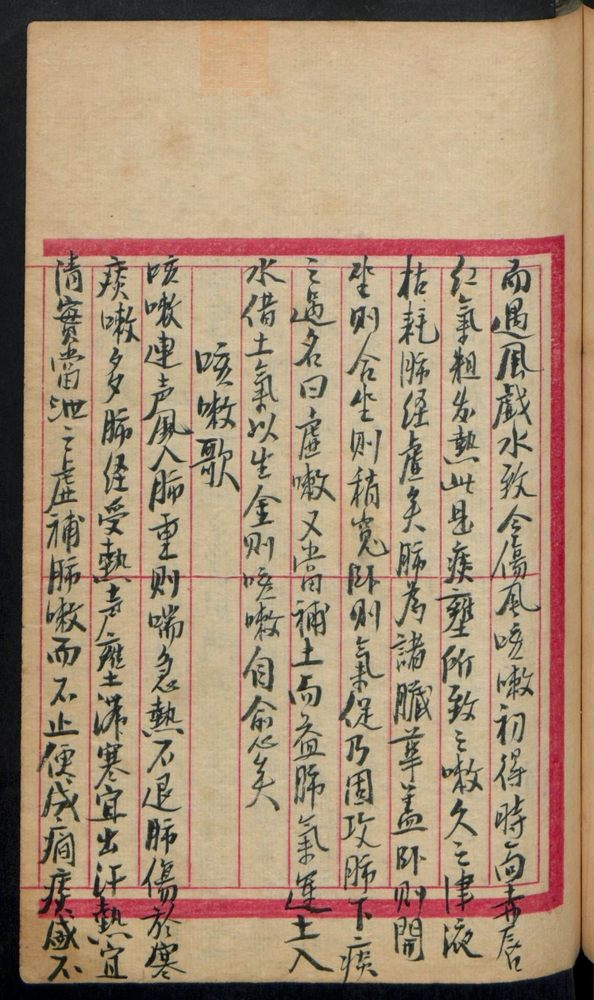 而遇風戲水致令傷風咳嗽初得時面赤唇
紅氣粗发熱此是痰壅所致之嗽久之津液
枯耗肺经虚矣肺為諸臟華盖卧则開
坐则合坐则稍寬卧则氣促乃因攻肺下痰
之過名曰虚嗽又當補土而益肺氣運土入
水借土氣以生金则咳嗽自愈矣
咳嗽歌
咳嗽連声風入肺重则喘急熱不退肺傷於寒
痰嗽多肺经受熱壅滞寒宜出汗熱宜
清實當泄之虚補肺嗽而不止便成癇痰盛不